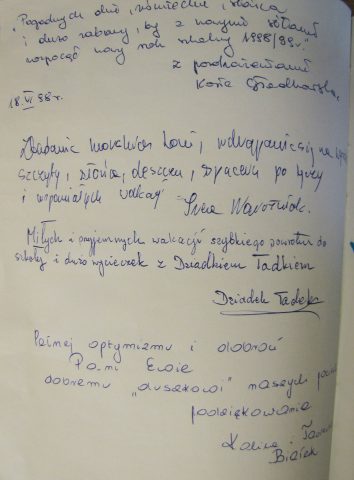 "Pogodnych dni, uśmiechu, słońca
i dużo zabawy, by z nowymi siłami
rozpocząć nowy rok szkolny 1998/99r."
z pozdrowieniami
Kasia
18.VI 98r.
Zbadania morskich toni, wdrapania się na
szczyty, słońca, deszczu, spaceru po tęczy
i wspaniałych wakacji
Miłych i przyjemnych wakacji szybkiego powrotu do
szkoły i dużo wycieczek z Dziadkiem Tadkiem
Dziadek Tadek
Pełnej optymizmu i dobroci
Pani Ewie
dobremu "duszkowi" naszych
podziękowanie
Kalina i
Białek